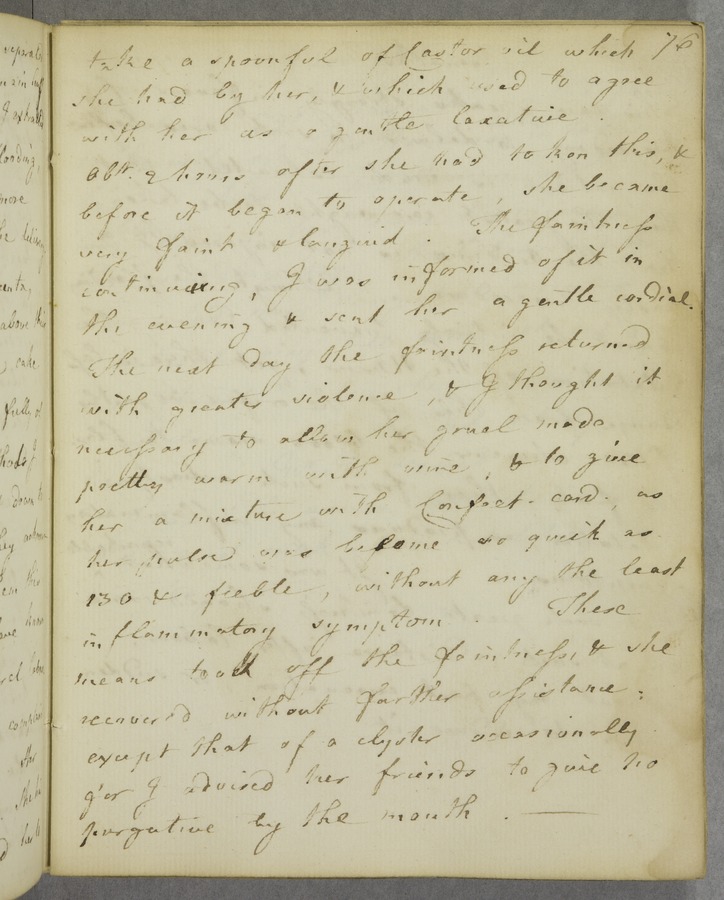 take a spoonful of Castor oil which 76
she had by her, & which used to agree
with her as a gentle laxative.
Abt. 2 hours after she had token this, &
before it began to operate, she became
very faint & languid. The faintness
continuing, I was informed of it in
the evening & sent her a gentle cordial.
The next day the faintness returned
with greater violence, & I thought it
necessary to allow her gruel made
pretty warm with wine, & to give
her a mixture with Confect. card., as
her pulse was become so quick as
130 & fieble, without any the least
inflammatory symptom. These
means took off the faintness, & she
recovered without farther assistance;
except that of a clyster occasionally
for I advised her friends to give no
purgative by the mouth. —